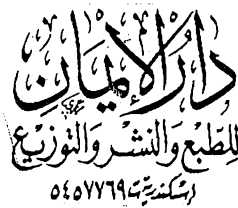 دار الإيمان
للطبع والنشر والتوزيع
إسكندرية ٥٤٥٧٧٦٩